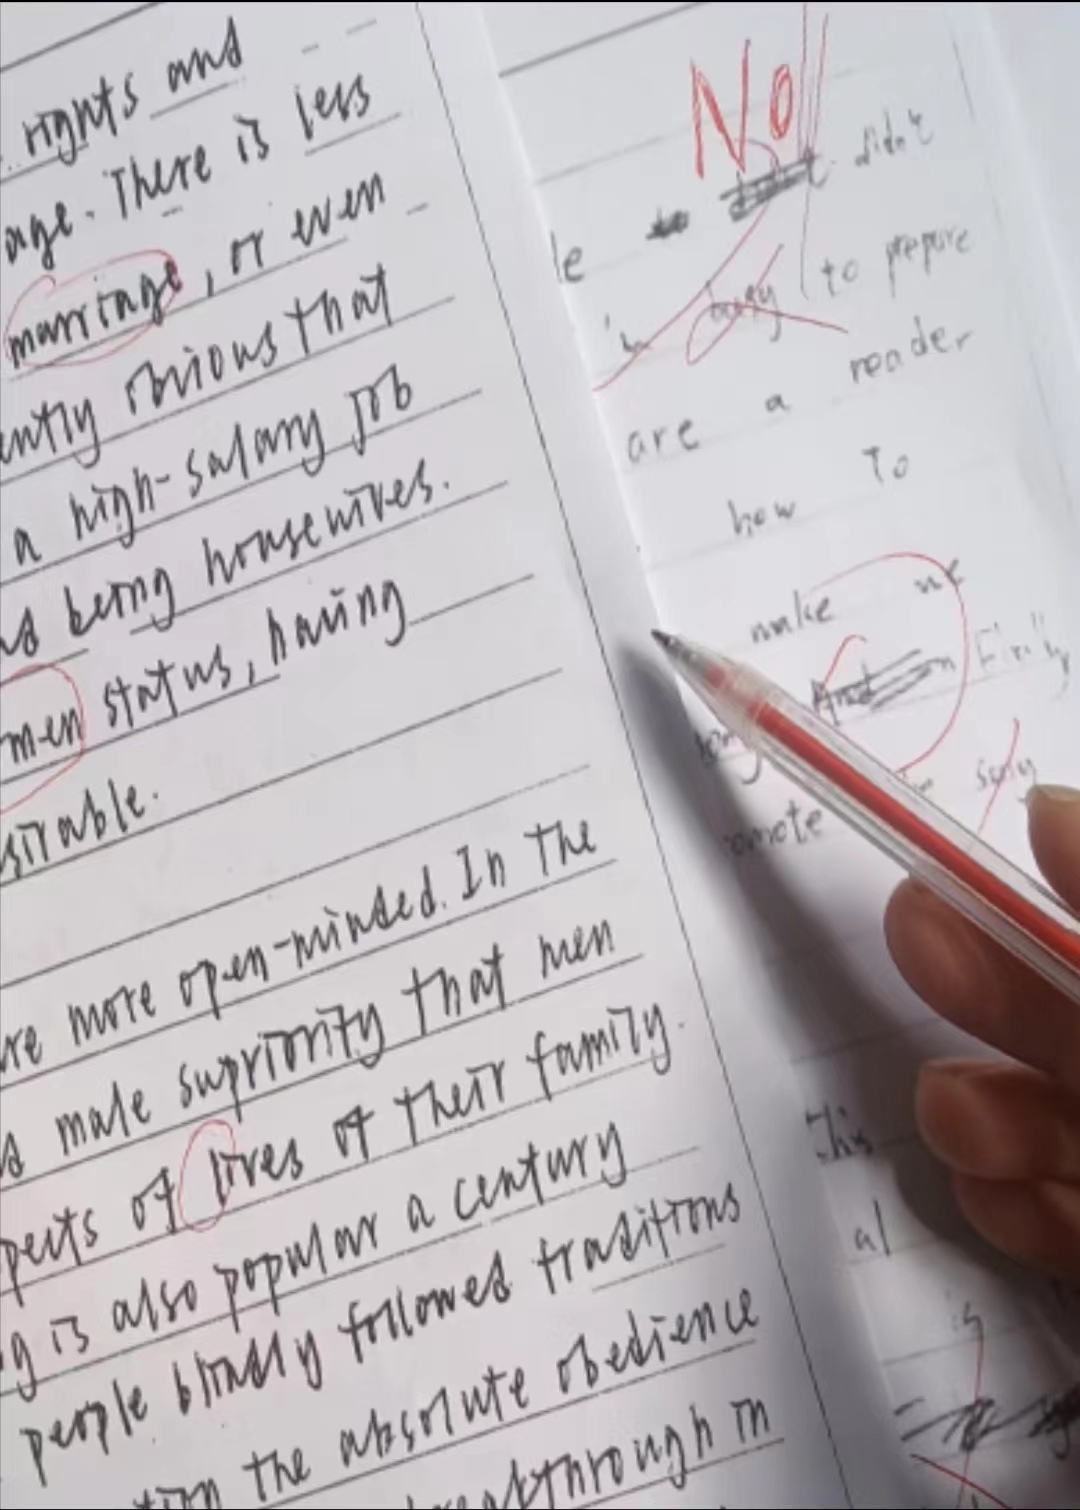 rights and
age. There is less
marriage, or even
ently obvious that
a high-salary job
being housewives.
men status, having
sirable.
re more open-minded. In the
male supriority that men
pects of lives of their family.
g is also popular a century
people blindly followed traditions
tion the absolute obedience
eakthrough in
No
didn't
le
busy to prepare
are a reader
how To
make
And Finally
say
omote
This
al
is